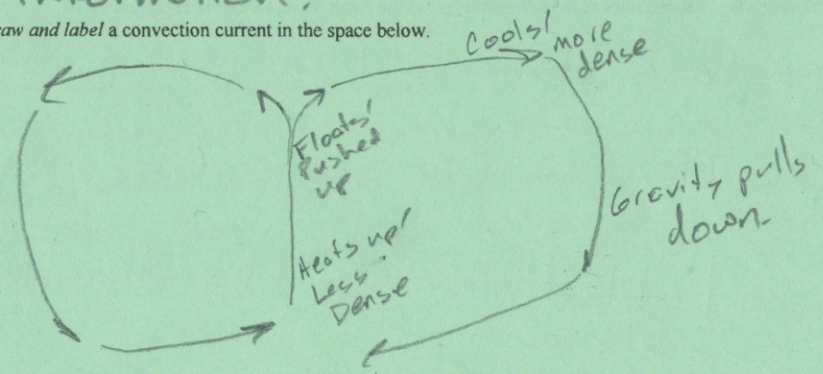 aw and label a convection current in the space below.
Cools/
more
dense
Floats/
Pushed
up
Gravity pulls
down
Heats up/
Less
Dense